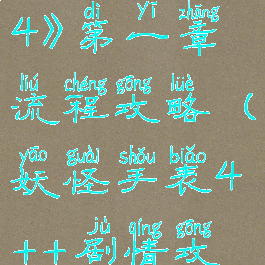 dì yī zhāng
4》第一章
liú chéng gōng lüè
流程攻略（
yāo guài shǒu biǎo
妖怪手表4
jù qíng gōng
++剧情攻